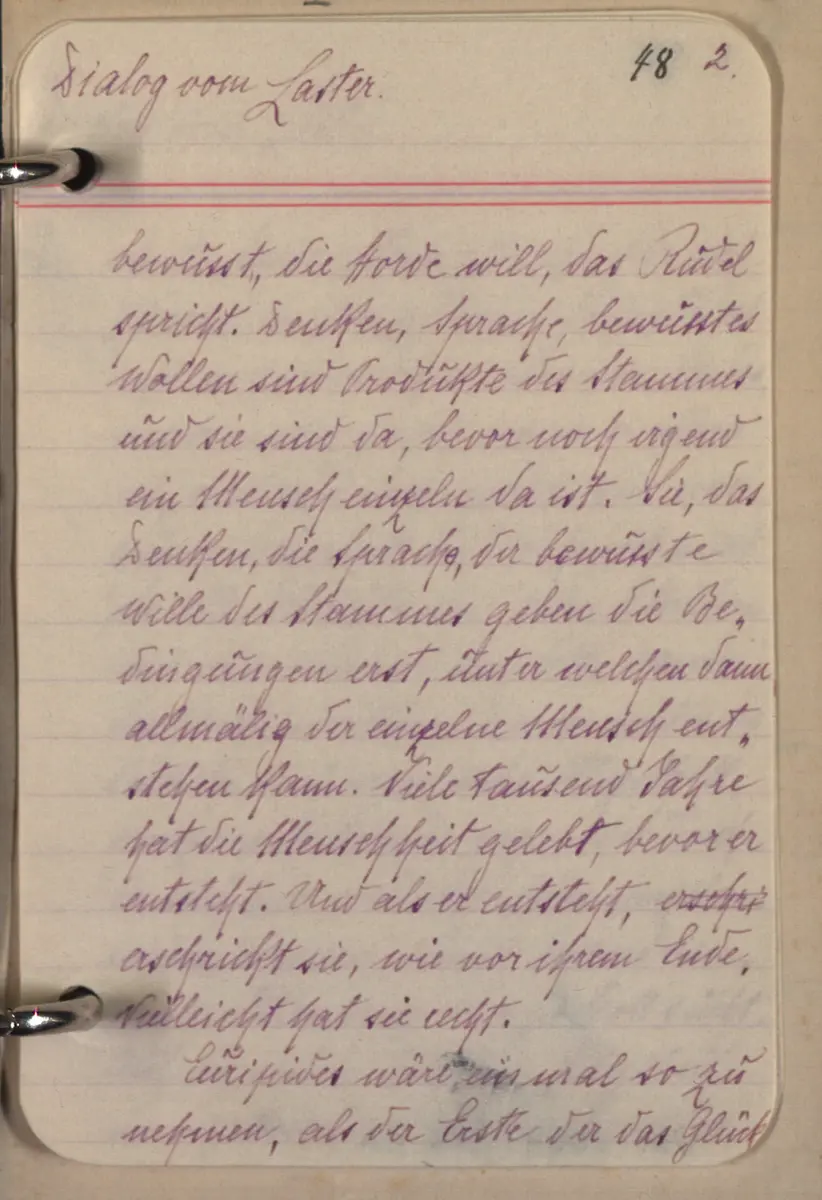 Dialog vom Laster.
48 2.
bewusst, die Horde will, das Rudel
spricht. Denken, Sprache, bewusstes
Wollen sind Produkte des Stammes
und sie sind da, bevor noch irgend
ein Mensch einzeln da ist. Sie, das
Denken, die Sprache, der bewusste
Wille des Stammes geben die Be„
dingungen erst, unter welchen dann
allmälig der einzelne Mensch ent„
stehen kann. Viele tausend Jahre
hat die Menschheit gelebt, bevor er
entsteht. Und als er entsteht, erschri
erschrickt sie, wie vor ihrem Ende.
Vielleicht hat sie recht.
Euripides wäre einmal so zu
nehmen, als der Erste der das Glück